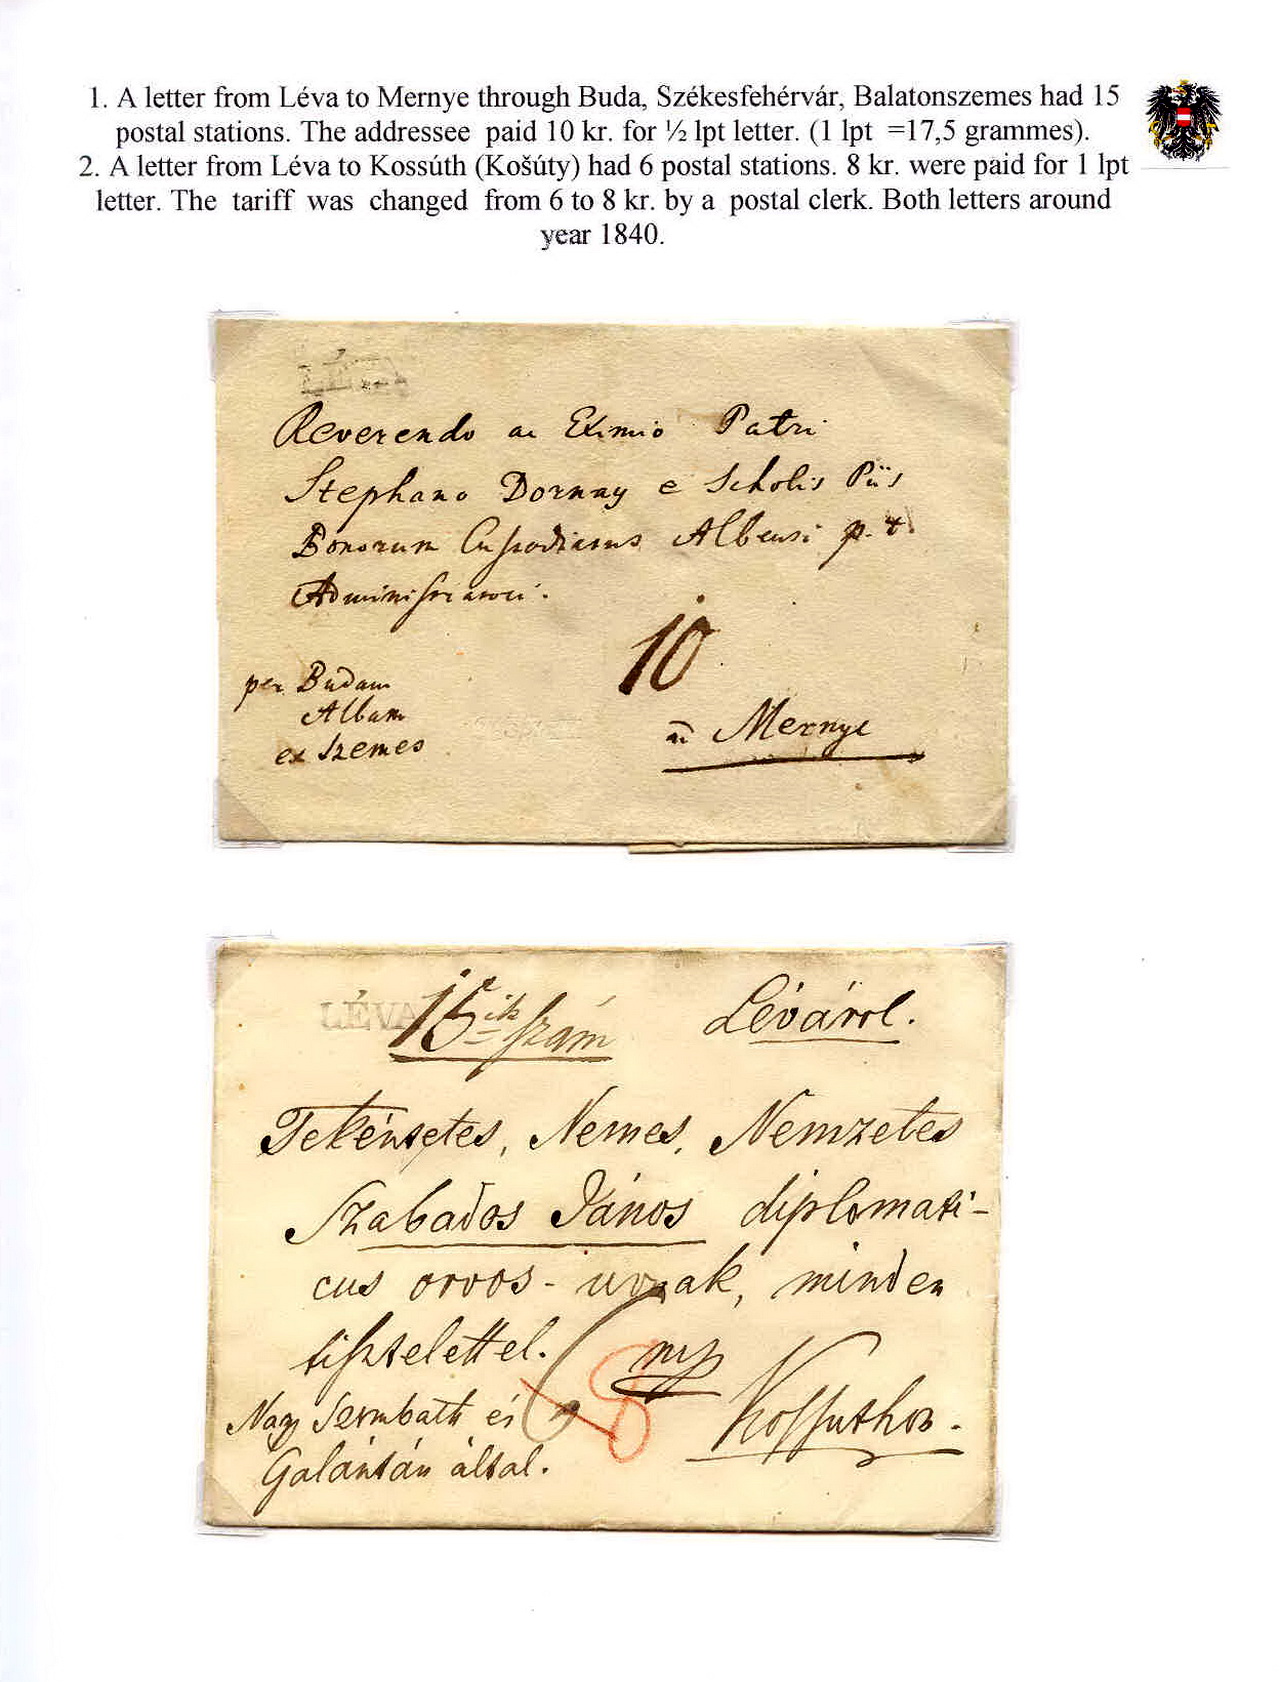 1. A letter from Léva to Mernye through Buda, Székesfehérvár, Balatonszemes had 15
postal stations. The addressee paid 10 kr. for ½ lpt letter. (1 lpt =17,5 grammes).
2. A letter from Léva to Kossúth (Košúty) had 6 postal stations. 8 kr. were paid for 1 lpt
letter. The tariff was changed from 6 to 8 kr. by a postal clerk. Both letters around
year 1840.
LÉVA
Reverendo ac Eximio Patri
Stephano Dornay e Scholis Piis
Bonorum Custodiatus Albensi p. t.
Administratori.
10
per Budam
Albam
ex Szemes
a Mernye
LÉVA
15ik szám
Léváról.
Tekéntetes, Nemes, Nemzetes
Szabados János diplomati-
cus orvos-urnak, minden
tisztelettel.
6
8
Nagy Szombath és
Galántán által.
Kossuthon.